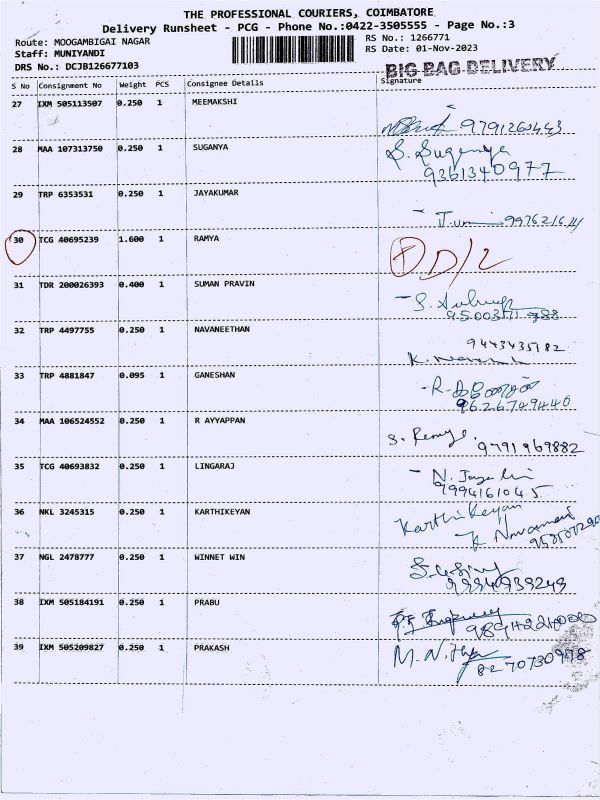 THE PROFESSIONAL COURIERS, COIMBATORE
Delivery Runsheet - PCG - Phone No.:0422-3505555 - Page No.:3
Route: MOOGAMBIGAI NAGAR RS No.: 1266771
Staff: MUNIYANDI RS Date: 01-Nov-2023
DRS No.: DCJB126677103 BIG BAG DELIVERY
S No Consignment No Weight PCS Consignee Details Signature
27 IXM 505113507 0.250 1 MEEMAKSHI
9791260443
28 MAA 107313750 0.250 1 SUGANYA S. Suganya
9361340977
29 TRP 6353531 0.250 1 JAYAKUMAR
30 TCG 40695239 1.600 1 RAMYA D/2
31 TDR 200026393 0.400 1 SUMAN PRAVIN
32 TRP 4497755 0.250 1 NAVANEETHAN 9443435182
33 TRP 4881847 0.095 1 GANESHAN
9626749440
34 MAA 106524552 0.250 1 R AYYAPPAN
S. Remya 9791969882
35 TCG 40693832 0.250 1 LINGARAJ
9994161045
36 NKL 3245315 0.250 1 KARTHIKEYAN Karthikeyan
37 NGL 2478777 0.250 1 WINNET WIN
9994939249
38 IXM 505184191 0.250 1 PRABU
39 IXM 505209827 0.250 1 PRAKASH
8270730978